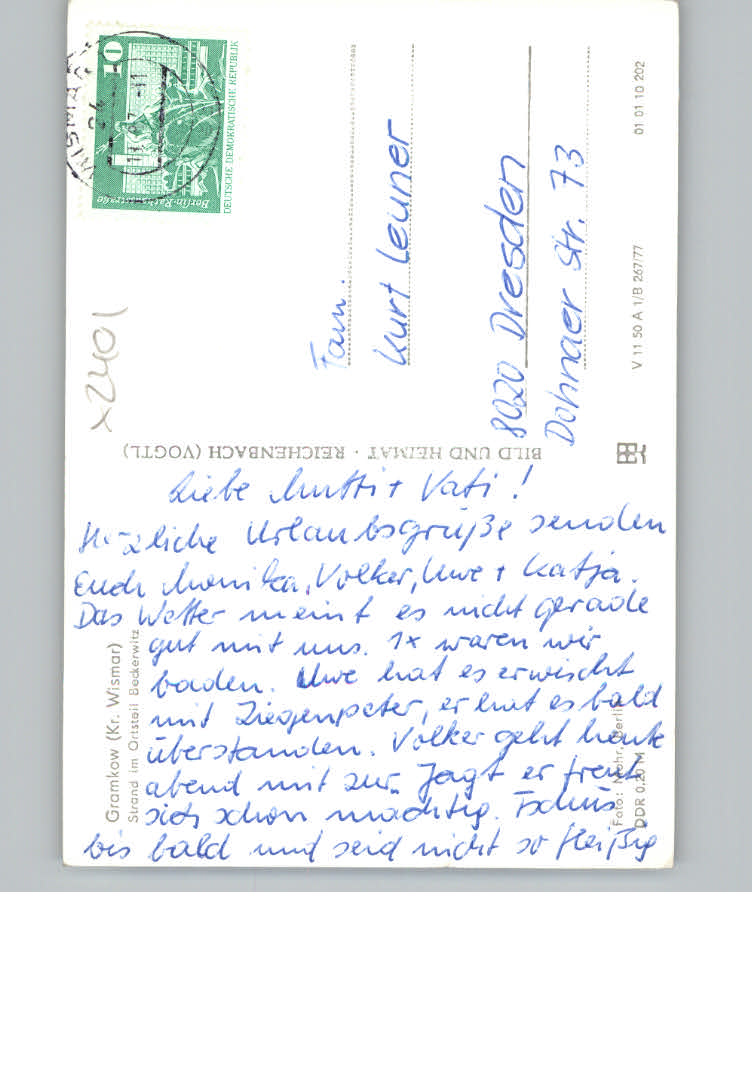 Liebe Mutti + Vati!
Herzliche Urlaubsgrüße senden
Euch Monika, Volker, Uwe + Katja.
Das Wetter meint es nicht gerade
gut mit uns. 1x waren wir
baden. Uwe hat es erwischt
mit Ziegenpeter, er hat es bald
überstanden. Volker geht heute
abend mit zur Jagt er freut
sich schon mächtig. Tschüs
bis bald und seid nicht so fleißig
Fam.
Kurt Leuner
8020 Dresden
Dohnaer Str. 73
10
DEUTSCHE DEMOKRATISCHE REPUBLIK
Berlin-Rathausstraße
WISMAR
24
-11
x2401
BILD UND HEIMAT · REICHENBACH (VOGTL)
Gramkow (Kr. Wismar)
Strand im Ortsteil Beckerwitz
Foto: Mohr, Berlin
DDR 0,20 M
V 11 50 A 1/B 267/77
01 01 10 202